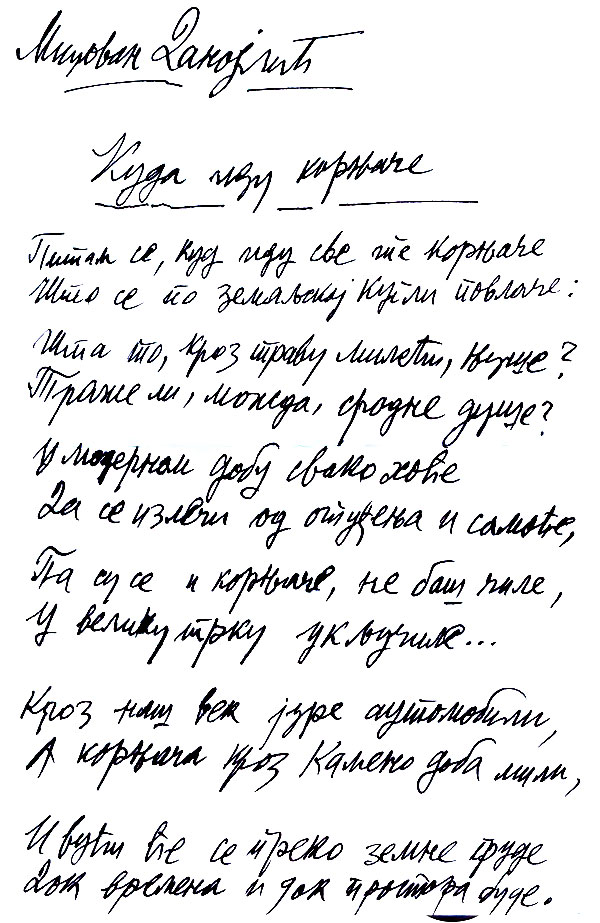 Милован Данојлић
Куда иду корњаче
Питам се, куд иду све те корњаче
Што се по земаљској кугли повлаче:
Шта то, кроз траву милећи, њуше?
Траже ли, можда, сродне душе?
У модерном добу свако хоће
Да се излечи од отуђења и самоће,
Па су се и корњаче, не баш чиле,
У велику трку укључиле...
Кроз наш век јуре аутомобили,
А корњача кроз Камено доба мили,
И вући ће се преко земне груде
Док времена и док простора буде.